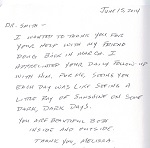 JUNE 15, 2014
DR. SMITH -
I WANTED TO THANK YOU FOR
YOUR HELP WITH MY FRIEND
DOUG BACK IN MARCH. I
APPRECIATED YOUR DAILY FOLLOW UP
WITH HIM. FOR ME, SEEING YOU
EACH DAY WAS LIKE SEEING A
LITTLE RAY OF SUNSHINE ON SOME
DARK, DARK DAYS.
YOU ARE BEAUTIFUL BOTH
INSIDE AND OUTSIDE.
THANK YOU, MELISSA